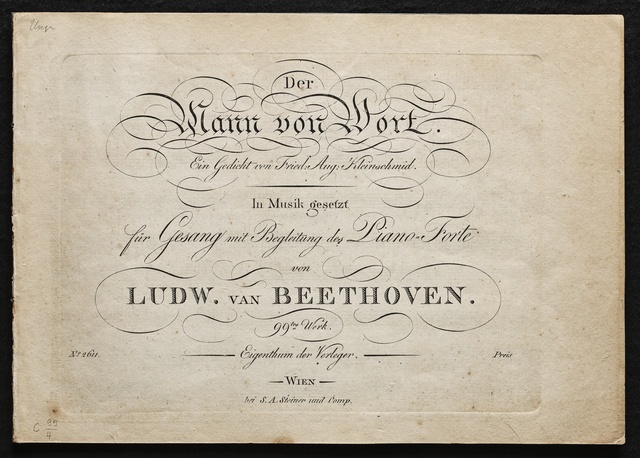 Der
Mann von Wort.
Ein Gedicht von Fried: Aug: Kleinschmid.
In Musik gesetzt
für Gesang mit Begleitung des Piano-Forte
von
LUDW. VAN BEETHOVEN.
99tes Werk.
Nº 2611. Eigenthum der Verleger. Preis
WIEN
bei S. A. Steiner und Comp.
C 99/4